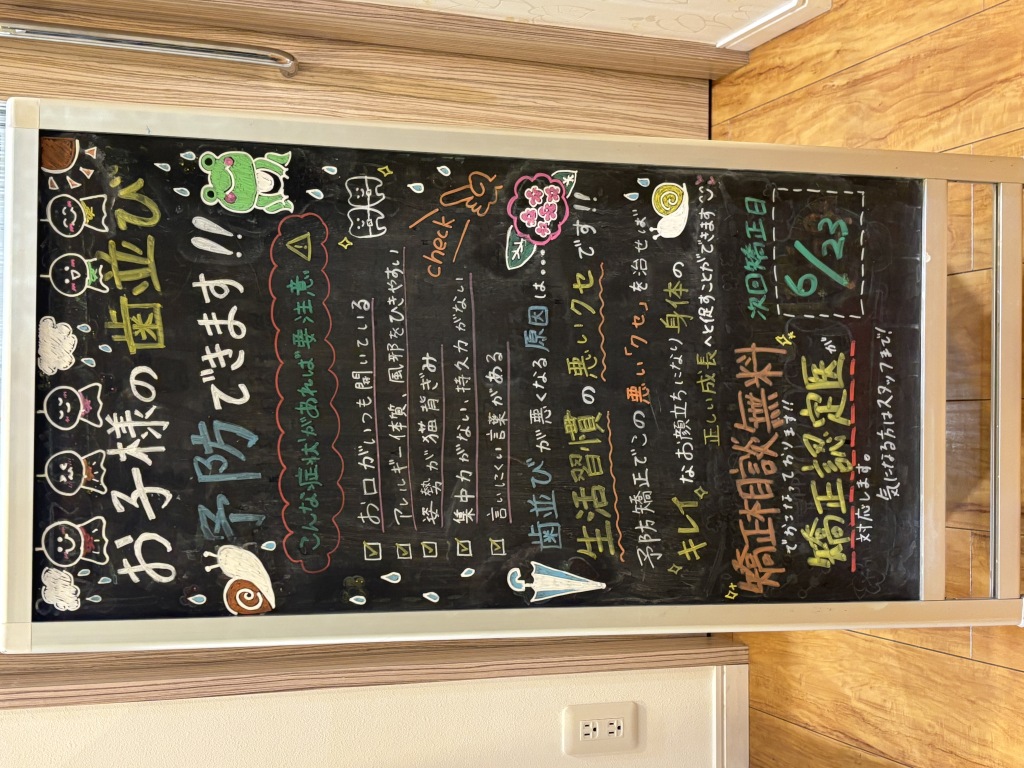 お子様の歯並び
予防できます!!
こんな症状があれば要注意
お口がいつも開いている
アレルギー体質、風邪をひきやすい
姿勢が猫背ぎみ
集中力がない、持久力がない
言いにくい言葉がある
check
歯並びが悪くなる原因は....
生活習慣の悪いクセです!!
予防矯正でこの悪い「クセ」を治せば
キレイなお顔立ちになり身体の
正しい成長へと促すことができます
矯正相談無料
でおこなっております!!
矯正認定医が
対応します。
気になる方はスタッフまで!!
次回矯正日
6/23